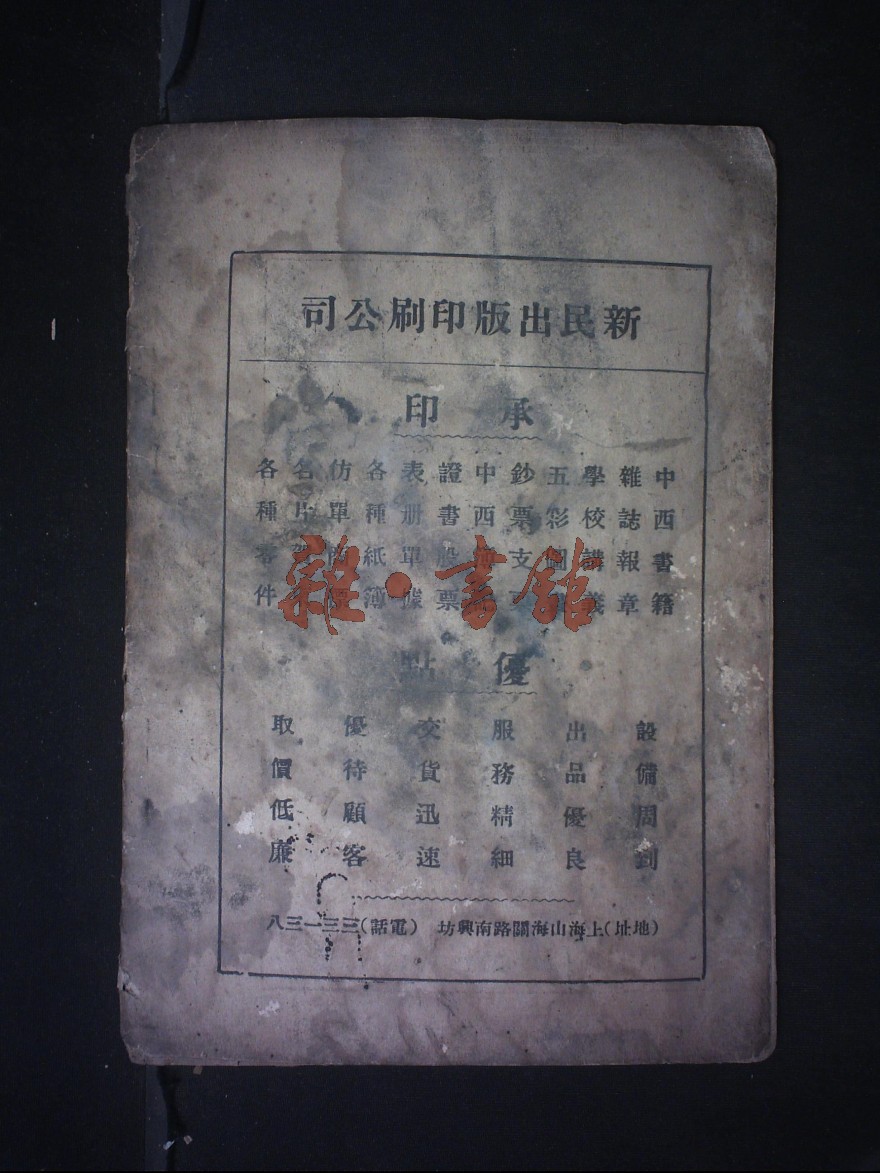 新民出版印刷公司
承印
中西書籍
雜誌報章
學校講義
五彩圖
鈔票支
中西
證書股票
表册單據
各種紙簿
仿單
名片
各種零件
優點
設備周到
出品優良
服務精細
交貨迅速
優待顧客
取價低廉
(地址)上海山海關路南興坊 (電話)三三一三八
雜·書館